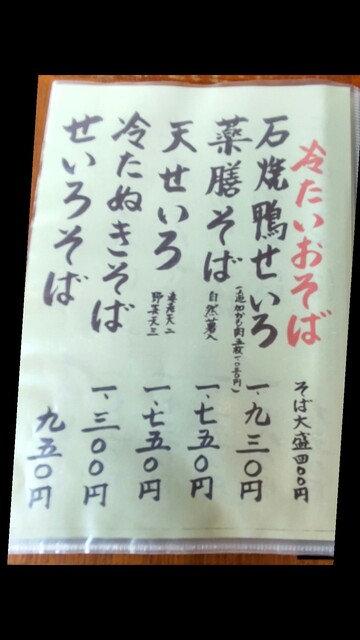 冷たいおそば
そば大盛四〇〇円
石焼鴨せいろ
一、九三〇円
薬膳そば
自然薯入
一、七五〇円
天せいろ
野菜天三
一、七五〇円
冷たぬきそば
一、三〇〇円
せいろそば
九五〇円